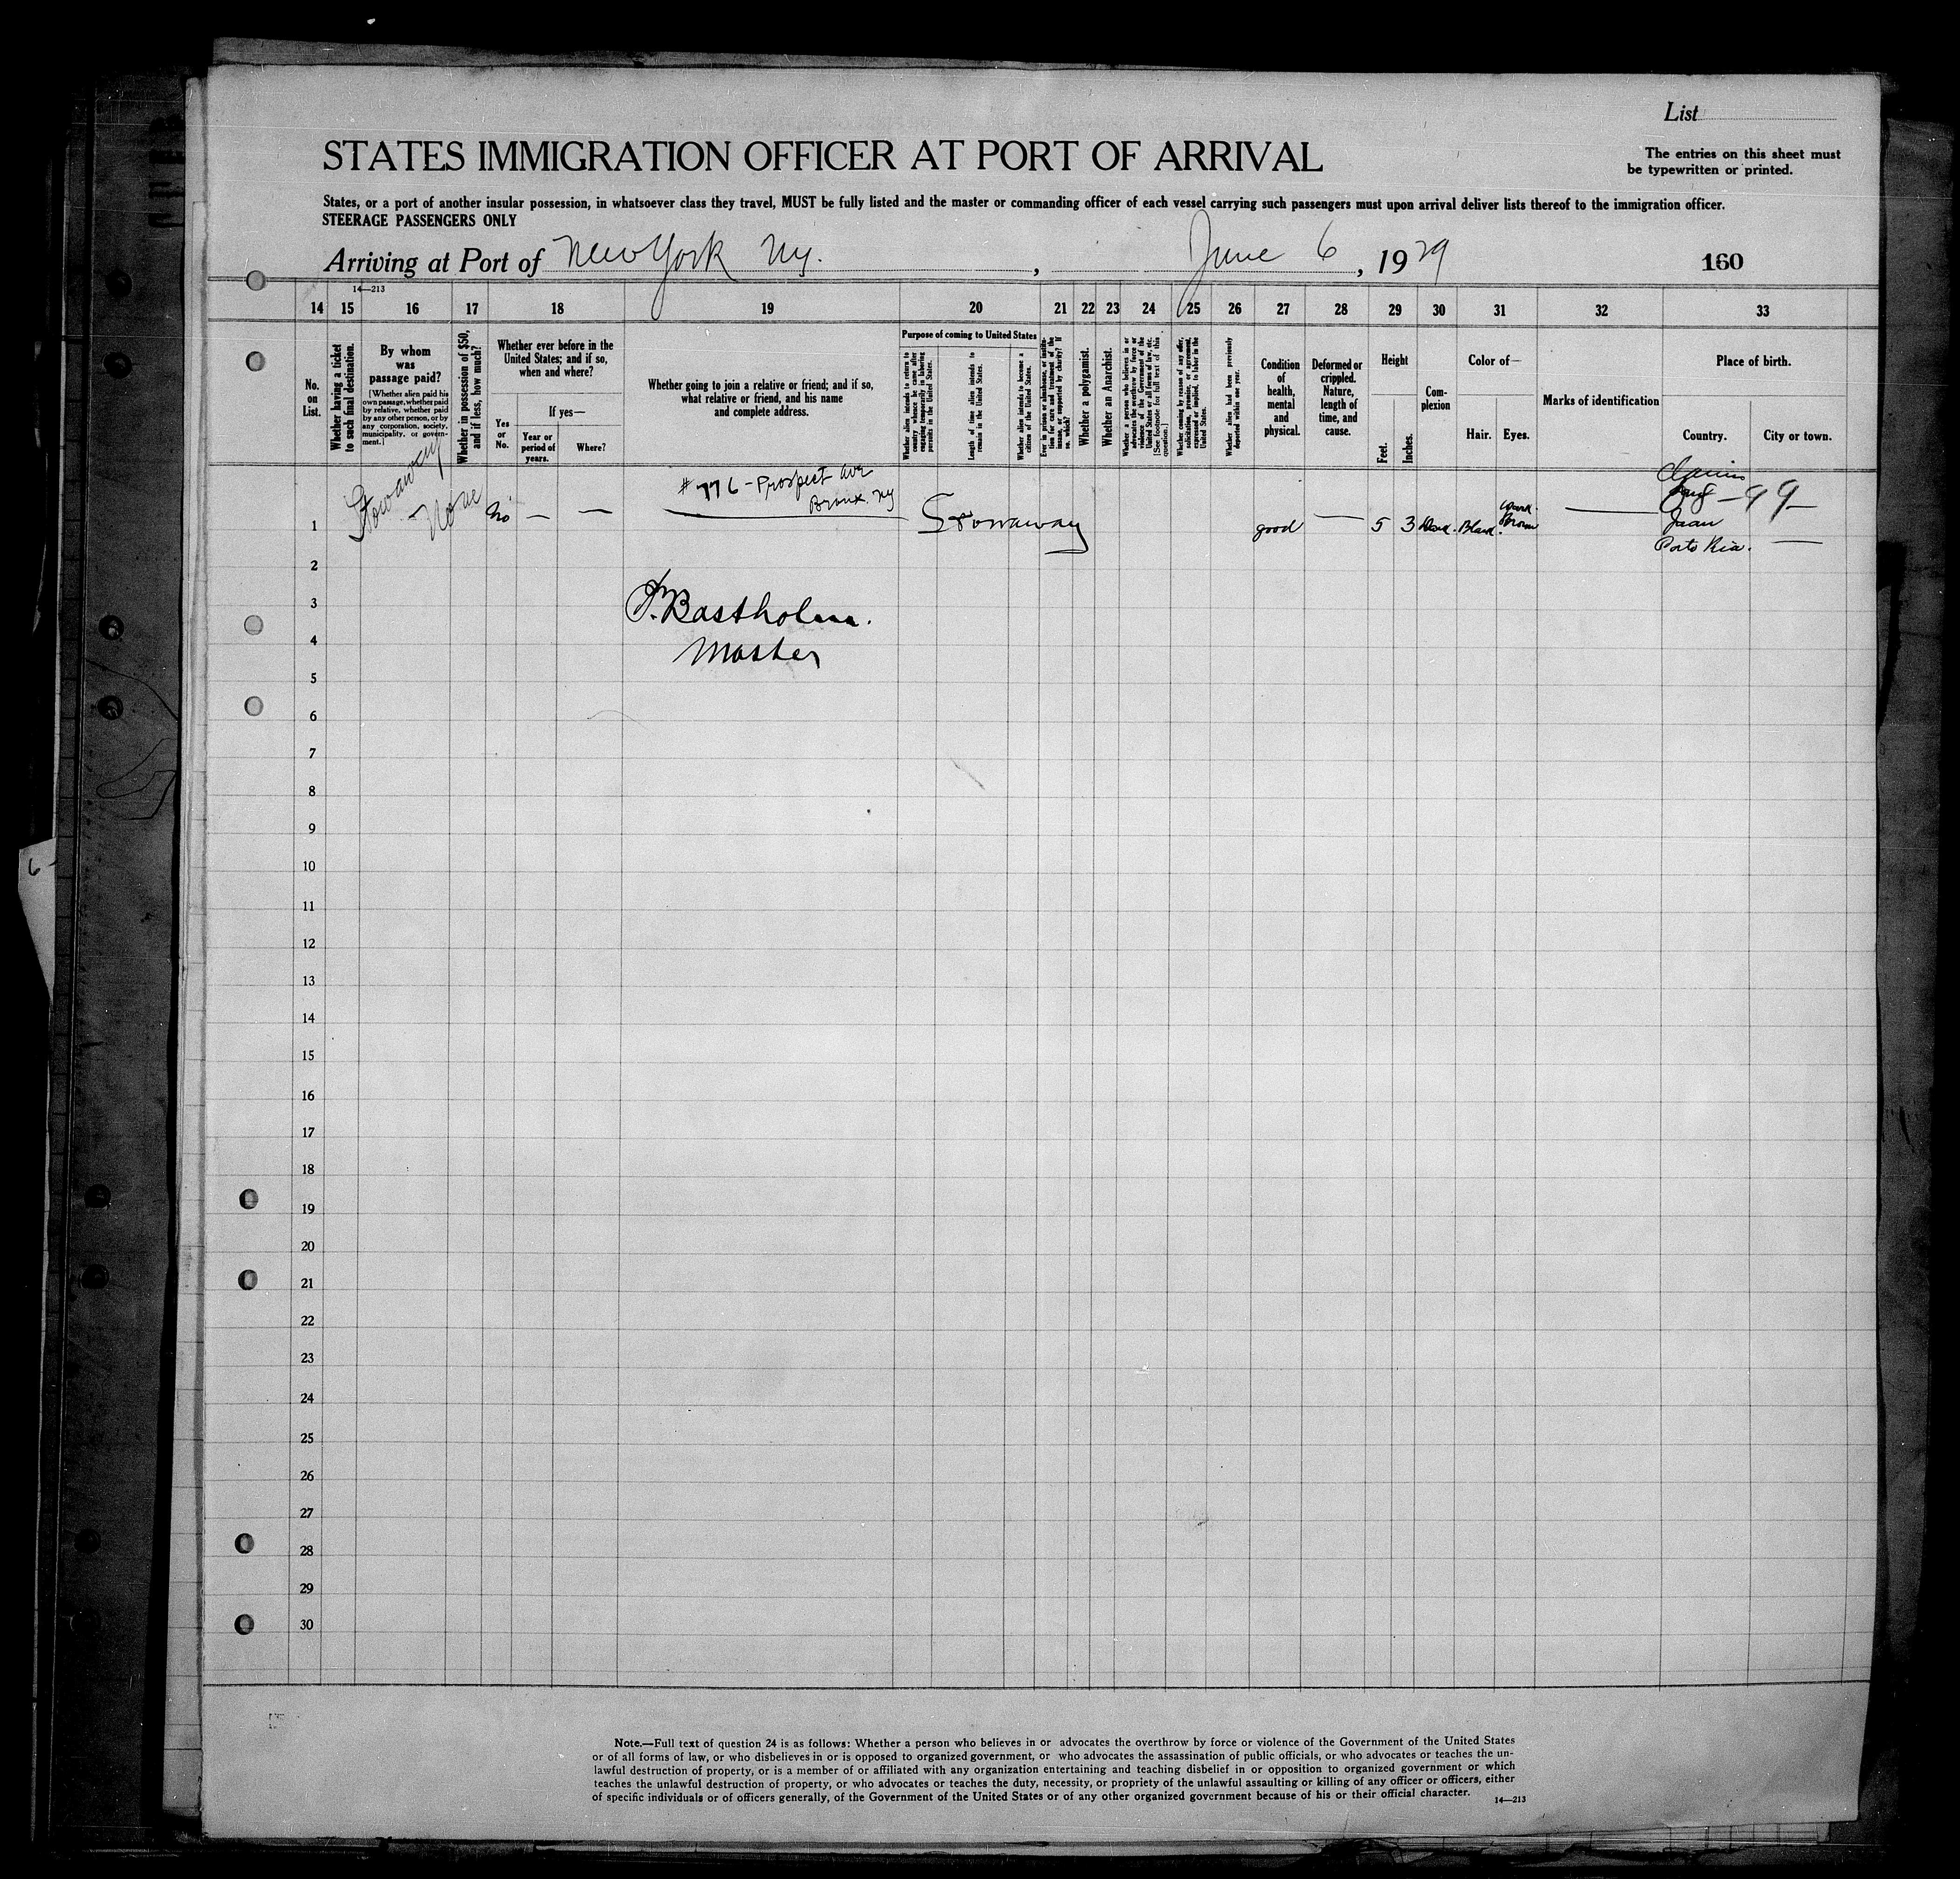 List
STATES IMMIGRATION OFFICER AT PORT OF ARRIVAL
The entries on this sheet must
be typewritten or printed.
States, or a port of another insular possession, in whatsoever class they travel, MUST be fully listed and the master or commanding officer of each vessel carrying such passengers must upon arrival deliver lists thereof to the immigration officer.
STEERAGE PASSENGERS ONLY
Arriving at Port of New York Ny. , June 6, 1929 160
14—213
14 15 16 17 18 19 20 21 22 23 24 25 26 27 28 29 30 31 32 33
No.
on
List.
Whether having a ticket
to such final destination.
By whom
was
passage paid?
[Whether alien paid his
own passage, whether paid
by relative, whether paid
by any other person, or by
any corporation, society,
municipality, or govern-
ment.]
Whether in possession of $50,
and if less, how much?
Whether ever before in the
United States; and if so,
when and where?
Yes
or
No.
If yes—
Year or
period of
years.
Where?
Whether going to join a relative or friend; and if so,
what relative or friend, and his name
and complete address.
Purpose of coming to United States
Whether alien intends to return to
country whence he came after
engaging temporarily in laboring
pursuits in the United States.
Length of time alien intends to
remain in the United States.
Whether alien intends to become a
citizen of the United States.
Ever in prison or almshouse, or institu-
tion for care and treatment of the
insane, or supported by charity? If
so, which?
Whether a polygamist.
Whether an Anarchist.
Whether a person who believes in or
advocates the overthrow by force or
violence of the Government of the
United States or all forms of law, etc.
[See footnote for full text of this
question.]
Whether coming by reason of any offer,
solicitation, promise, or agreement,
expressed or implied, to labor in the
United States.
Whether alien had been previously
deported within one year.
Condition
of
health,
mental
and
physical.
Deformed or
crippled.
Nature,
length of
time, and
cause.
Height
Feet.
Inches.
Com-
plexion
Color of—
Hair.
Eyes.
Marks of identification
Place of birth.
Country.
City or town.
1 Stowaway — None No — — # 776 - Prospect Ave
Bronx. Ny
Stowaway good — 5 3 Dark. Black. Dark
Brown — Claims
—99—
Juan
Porto Rico. —
2
3 Bastholm.
4 Master
5
6
7
8
9
10
11
12
13
14
15
16
17
18
19
20
21
22
23
24
25
26
27
28
29
30
6
Note.—Full text of question 24 is as follows: Whether a person who believes in or advocates the overthrow by force or violence of the Government of the United States
or of all forms of law, or who disbelieves in or is opposed to organized government, or who advocates the assassination of public officials, or who advocates or teaches the un-
lawful destruction of property, or is a member of or affiliated with any organization entertaining and teaching disbelief in or opposition to organized government or which
teaches the unlawful destruction of property, or who advocates or teaches the duty, necessity, or propriety of the unlawful assaulting or killing of any officer or officers, either
of specific individuals or of officers generally, of the Government of the United States or of any other organized government because of his or their official character.
14—213